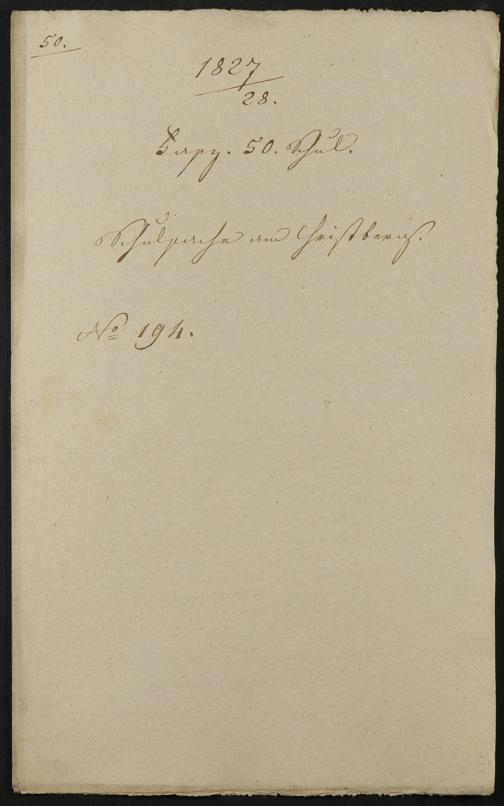 50.
1827
28.
Fasz. 50. Schul.
Schulsache am Christberg.
No 194.